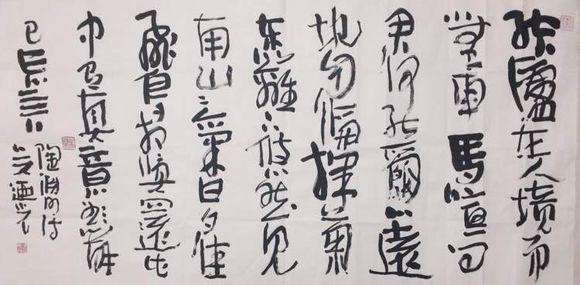 結廬在人境而
無車馬喧问
君何能爾心遠
地自偏採菊
東籬下悠然見
南山々氣日夕佳
飛鳥相與還此
中有真意欲辨
已忘言
陶渊明诗